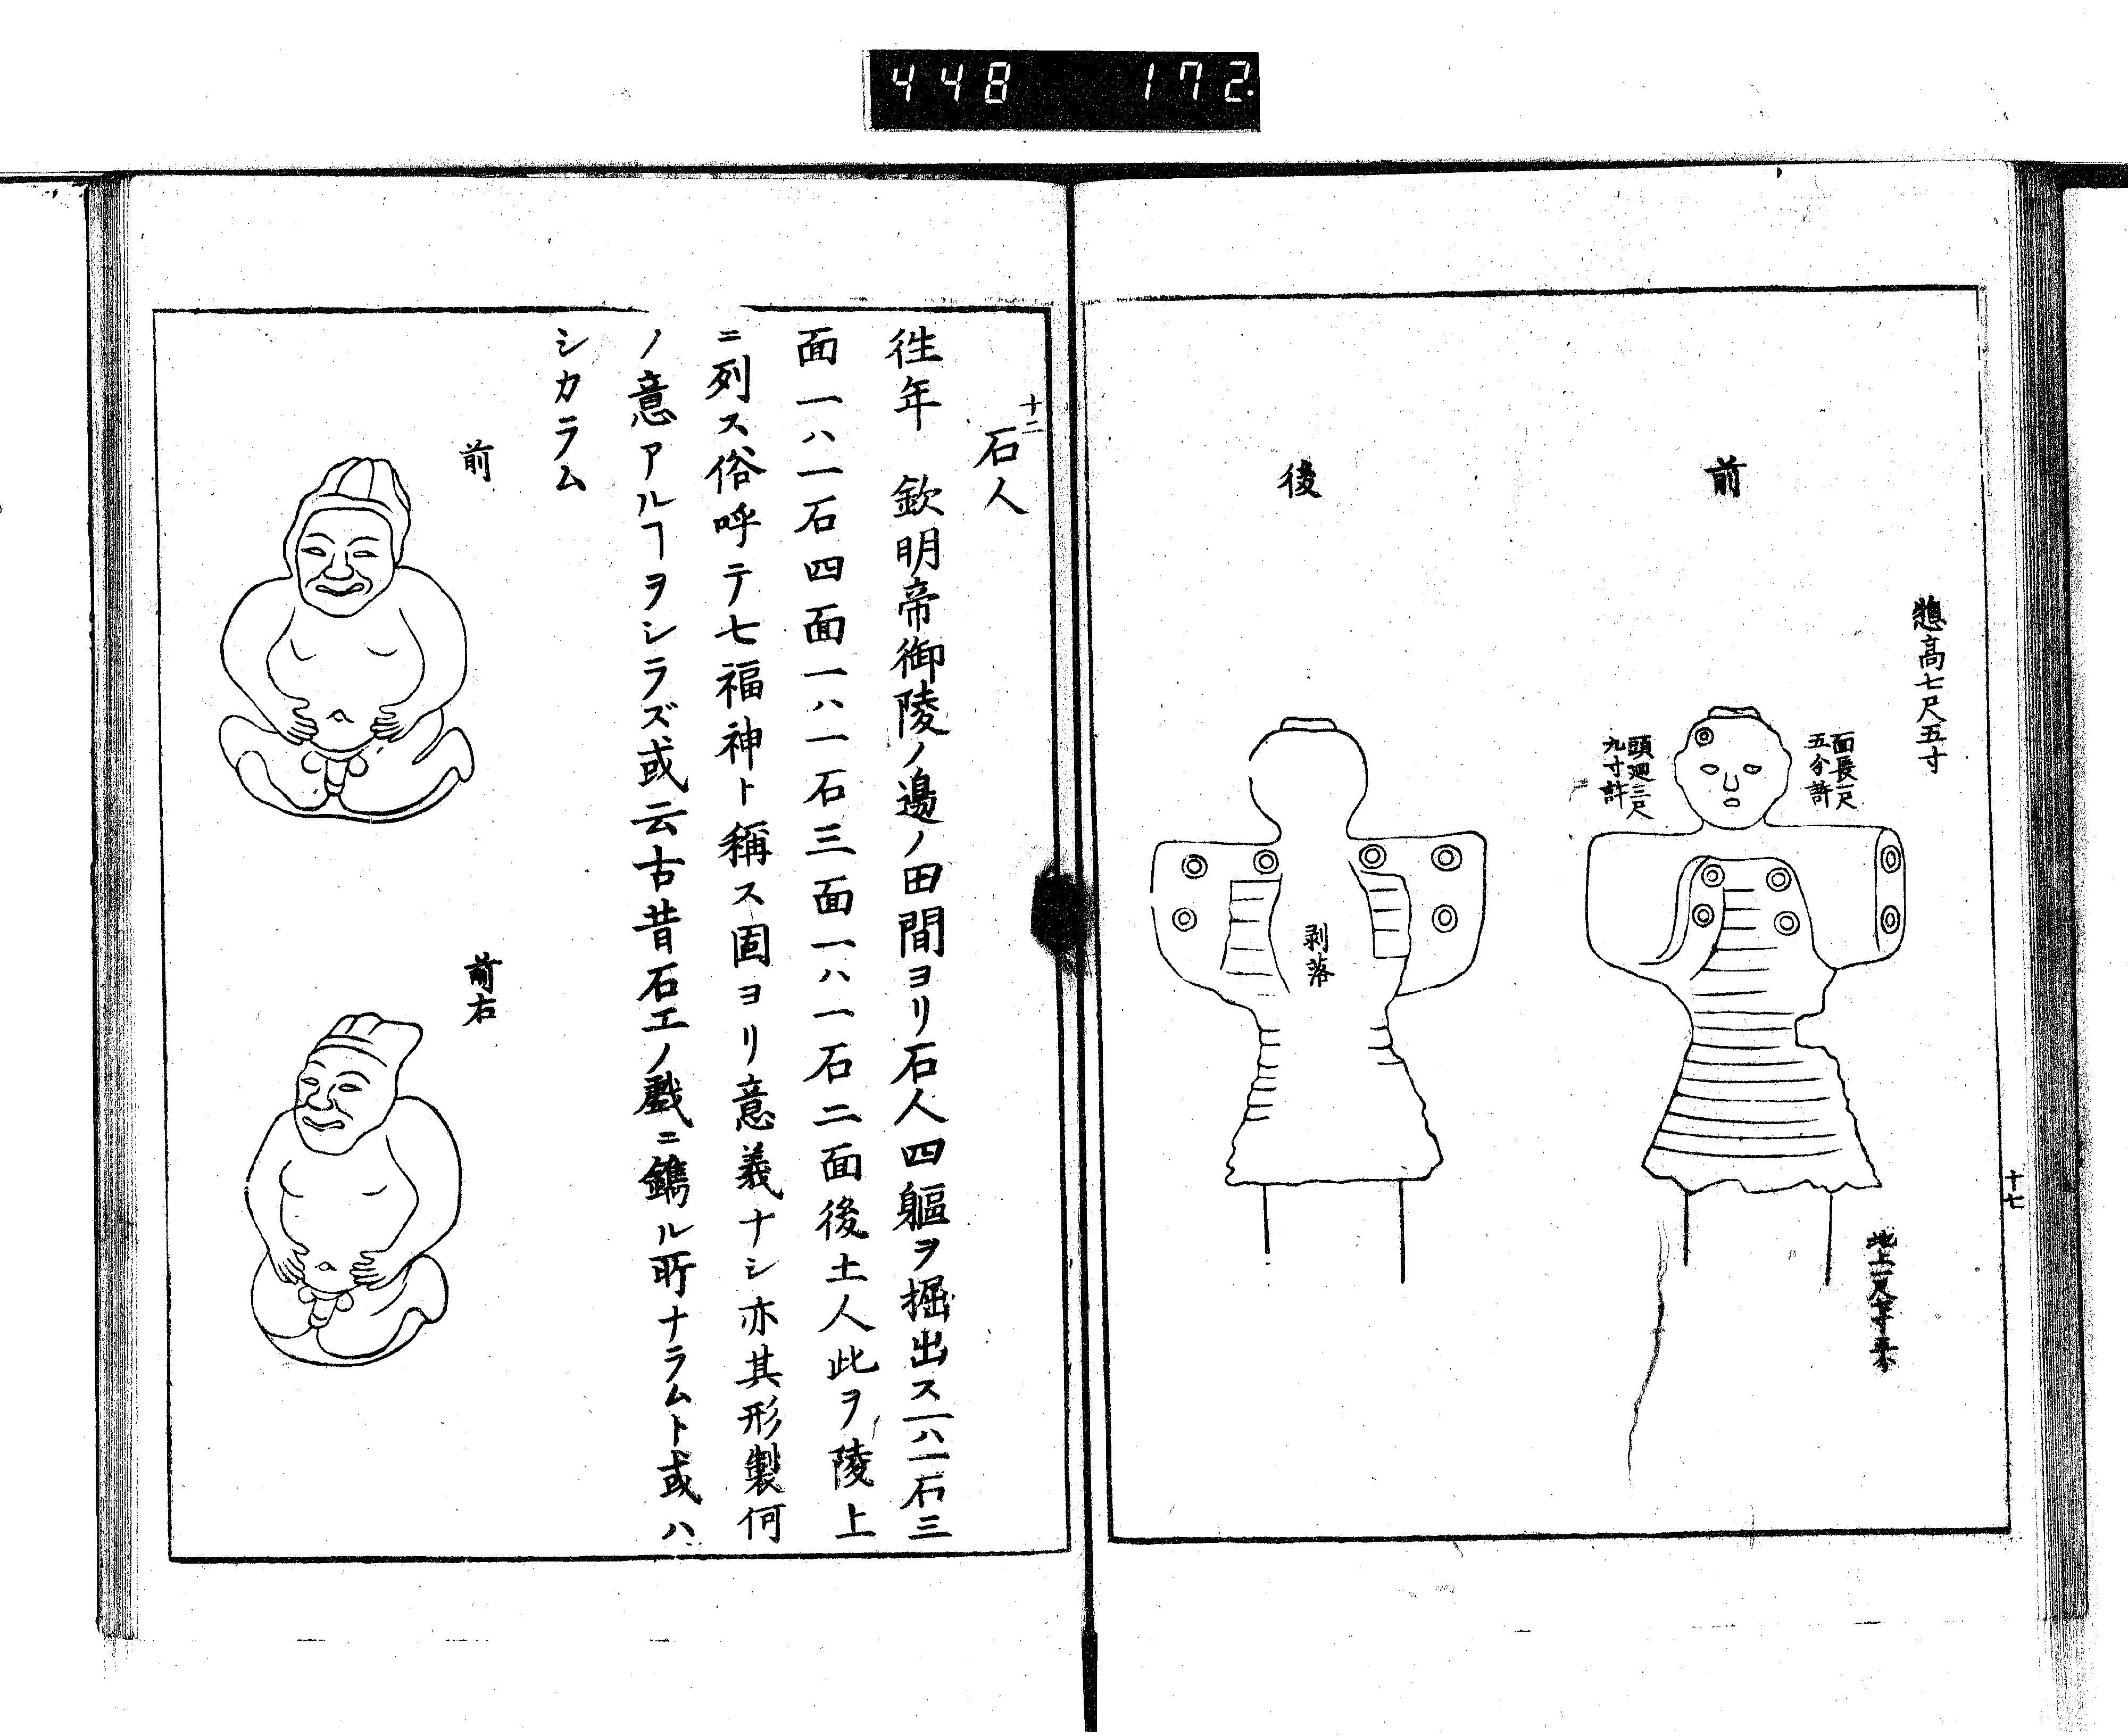 448 172.
惣高七尺五寸
前
面長一尺
五分許
頭廻三尺
九寸許
後
剥落
十七
十二
石人
往年 欽明帝御陵ノ邊ノ田間ヨリ石人四軀ヲ掘出ス一ハ一石三
面一ハ一石四面一ハ一石三面一ハ一石二面後土人此ヲ陵上
ニ列ス俗呼テ七福神ト稱ス固ヨリ意義ナシ亦其形製何
ノ意アルヿヲシラズ或云古昔石工ノ戲ニ鐫ル所ナラムト或ハ
シカラム
前
前右